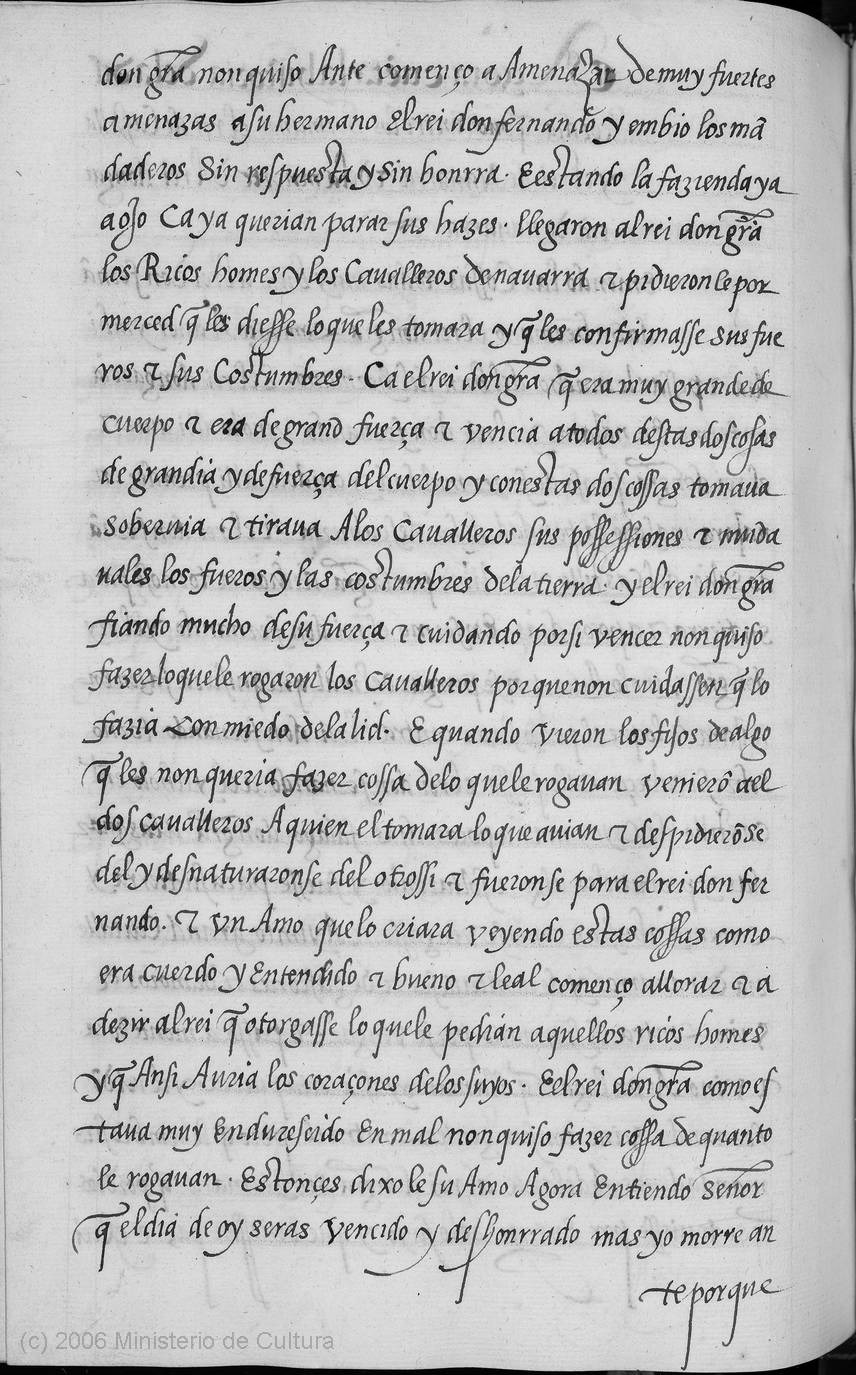 don grã̃a non quiso Ante començo a Amenazar De muy fuertes
amenazas a su hermano El rei don fernando y embio los mã
daderos Sin respuesta y Sin honrra. E estando la fazienda ya
a ojo Ca ya querian parar sus hazes. llegaron al rei don gr̃a
los Ricos homes y los Cavalleros de navarra & pidieron le por
merced q̃ les diesse lo que les tomara y q̃ les confirmasse sus fue
ros & sus Costumbres. Ca el rei don gr̃a q̃ era muy grande de
cuerpo & era de grand fuerça & vencia a todos destas dos cosas
de grandia y de fuerça del cuerpo y con estas dos cossas tomava
sobervia & tirava A los Cavalleros sus possessiones & muda
vales los fueros y las costumbres de la tierra. y el rei don gr̃a
fiando mucho de su fuerça & cuidando por si vencer non quiso
fazer lo que le rogaron los cavalleros por que non cuidassen q̃ lo
fazia Con miedo de la lid. E quando vieron los fijos de algo
q̃ les non queria fazer cossa de lo que le rogavan venierõ a el
dos cavalleros A quien el tomara lo que avian & despidierõse
del y desnaturaronse del otrossi & fueronse para el rei don fer
nando. & Vn Amo que lo criara veyendo estas cossas como
era cuerdo y Entendido & bueno & leal començo a llorar & a
dezir al rei q̃ otorgasse lo que le pedian aquellos ricos homes
y q̃ Ansi Auria los coraçones de los suyos. E el rei don gr̃a como es
tava muy Endurescido En mal non quiso fazer cossa de quanto
le rogavan. Estonçes dixo le su Amo Agora Entiendo señor
q̃ el dia de oy seras vencido y deshonrrado mas yo morre an
te porque
(c) 2006 Ministerio de Cultura